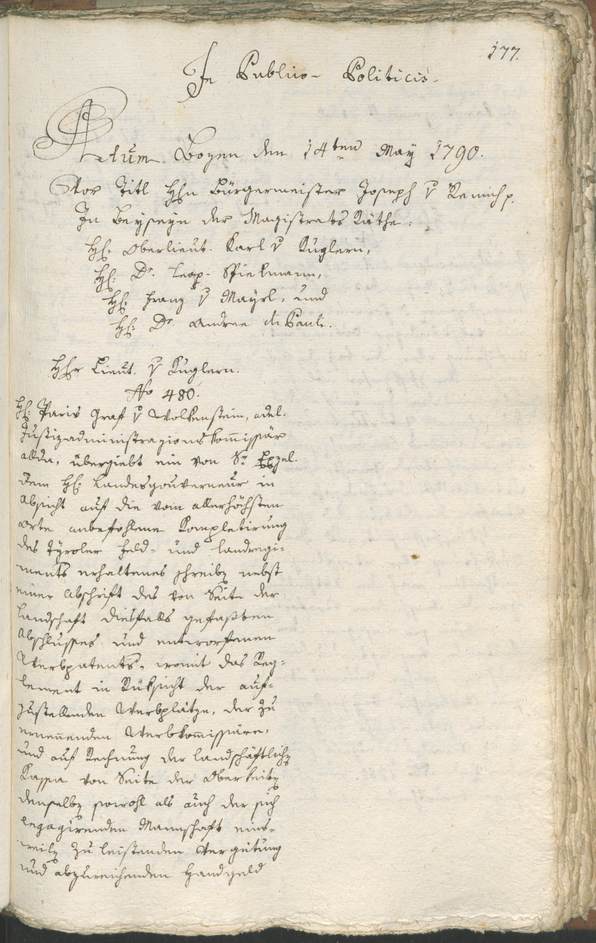 177.
In Publico-Politicis.
Actum Bozen den 14ten May 1790.
Vor Titl Hhn Bürgermeister Joseph v Remich p.
In Beyseyn der Magistrats Räthe:
Hh: Oberlieut. Karl v Kuglern,
Hh: Dr. Leop. Spielmann,
Hh: Franz v Mayrl, und
Hh: Dr Andree di Pauli.
Hhr Lieut. v Kuglern.
No 480.
Hh: Paris Graf v Wolkenstein, adel.
Justizadministrazionskommissär
allda, übergiebt ein von Sr. Exzel.
dem Hh: Landesgouverneur in
Absicht auf die vom allerhöchsten
Orte anbefohlene Kompletirung
des Tyroler Feld- und Landregi-
ments erhaltenes Schreiben nebst
einer Abschrift des von Seite der
Landschaft diesfalls gefaßten
Abschlusses und entworfenen
Werbpatents, womit das Reg-
lement in Rüksicht der auf-
zustellenden Werbplätze, der zu
ernennenden Werbkommissäre,
und auf Rechnung der landschaftlichen
Kassa von Seite der Oberkeiten
denselben sowohl als auch der sich
engagirenden Mannschaft einst-
weilen zu leistenden Vergütung
und abzureichenden Handgeld